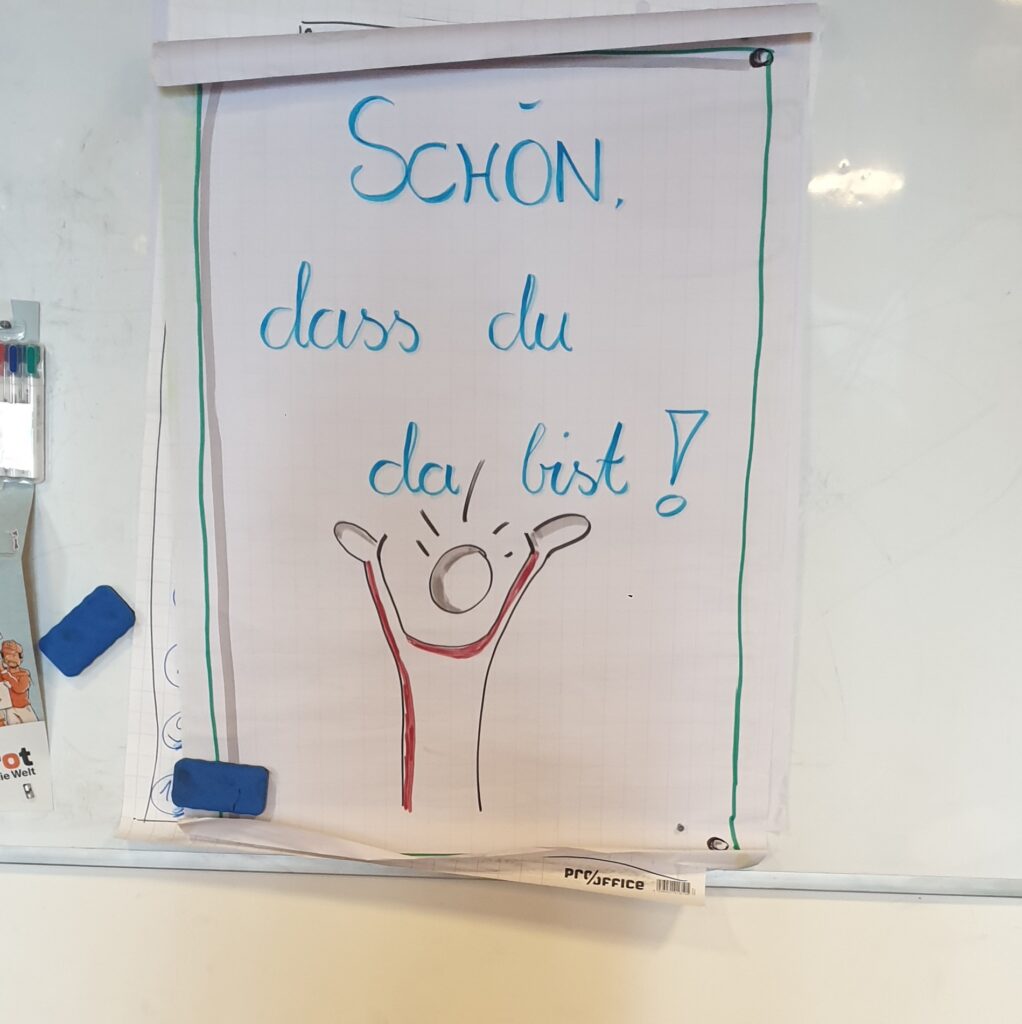 SCHÖN,
dass du
da bist!
ot
ie Welt
PRO/OFFICE